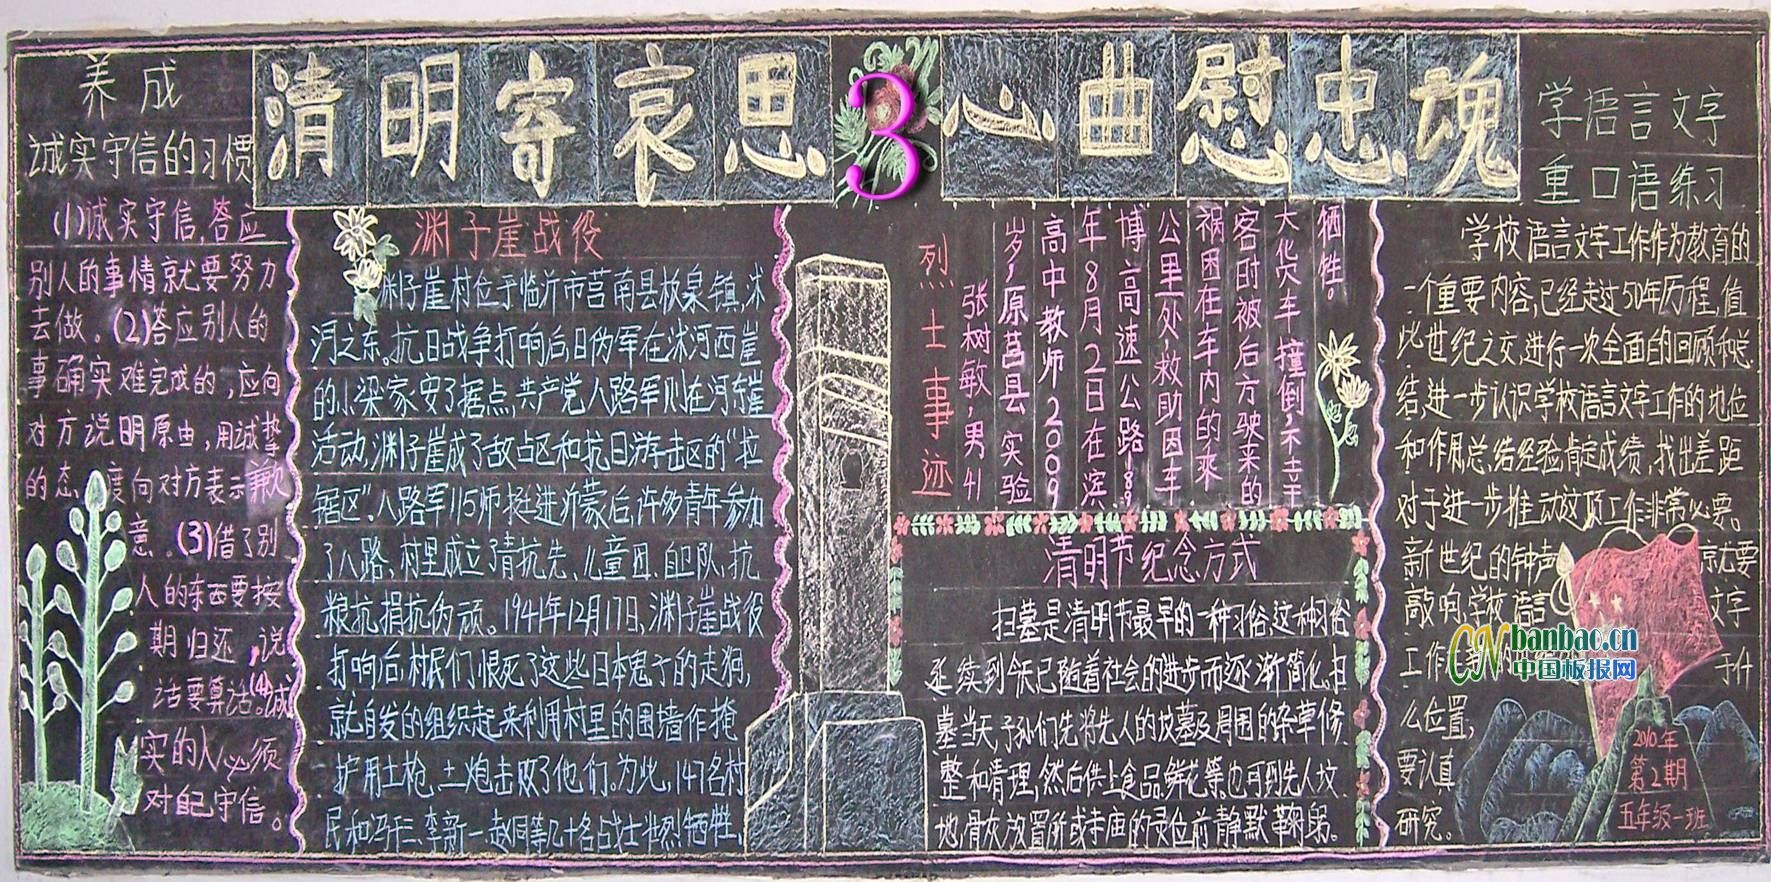 清明寄哀思
3
心曲慰忠魂
养成
诚实守信的习惯
(1)诚实守信,答应
别人的事情就要努力
去做。(2)答应别人的
事确实难完成的,应向
对方说明原由,用诚挚
的态度向对方表示歉
意。(3)借了别
人的东西要按
期归还,说
话要算话。(4)诚
实的人必须
对自己守信。
渊子崖战役
渊子崖村位于临沂市莒南县板泉镇,沭
河之东。抗日战争打响后,日伪军在沭河西崖
的小梁家安了据点,共产党八路军则在河东崖
活动,渊子崖成了敌占区和抗日游击区的“拉
锯区”。八路军115师挺进沂蒙后,许多青年参加
了八路,村里成立了青抗先、儿童团、自卫队,抗
粮抗捐抗伪顽。1941年12月17日,渊子崖战役
打响后村民们恨死了这些日本鬼子的走狗,
就自发的组织起来利用村里的围墙作掩
护用土枪、土炮击败了他们。为此,147名村
民和冯干三、李新一、赵同等几十名战士壮烈牺牲。
烈士事迹
张树敏,男41
岁,原莒县实验
高中教师2009
年8月2日在滨
博高速公路189
公里处,救助因车
祸困在车内的乘
客时被后方驶来的
大货车撞倒,不幸
牺牲。
清明节纪念方式
扫墓是清明节最早的一种习俗,这种习俗
延续到今天,已随着社会的进步而逐渐简化。扫
墓当天,子孙们先将先人的坟墓及周围的杂草修
整和清理,然后供上食品鲜花等,也可到先人坟
地、骨灰放置所或寺庙的灵位前静默鞠躬。
学语言文字
重口语练习
学校语言文字工作作为教育的
一个重要内容,已经走过50年历程,值
此世纪之交,进行一次全面的回顾和总
结,进一步认识学校语言文字工作的地位
和作用,总结经验,肯定成绩,找出差距
对于进一步推动这项工作非常必要。
新世纪的钟声 就要
敲响,学校语言 文字
工作
么位置,
要认真
研究。
CN banbao.cn
中国板报网
2010年
第2期
五年级一班